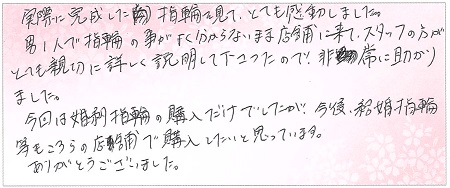 実際に完成した指輪を見て、とても感動しました。
男1人で指輪の事がよく分からないまま店舗に来て、スタッフの方が
とても親切に詳しく説明して下さったので、非常に助かり
ました。
今回は婚約指輪の購入だけでしたが、今後、結婚指輪
等もこちらの店舗で購入したいと思っています。
ありがとうございました。